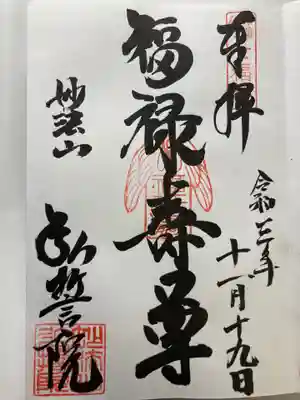 奉拝
令和三年
十一月十九日
福禄寿尊
妙法山
弘誓院